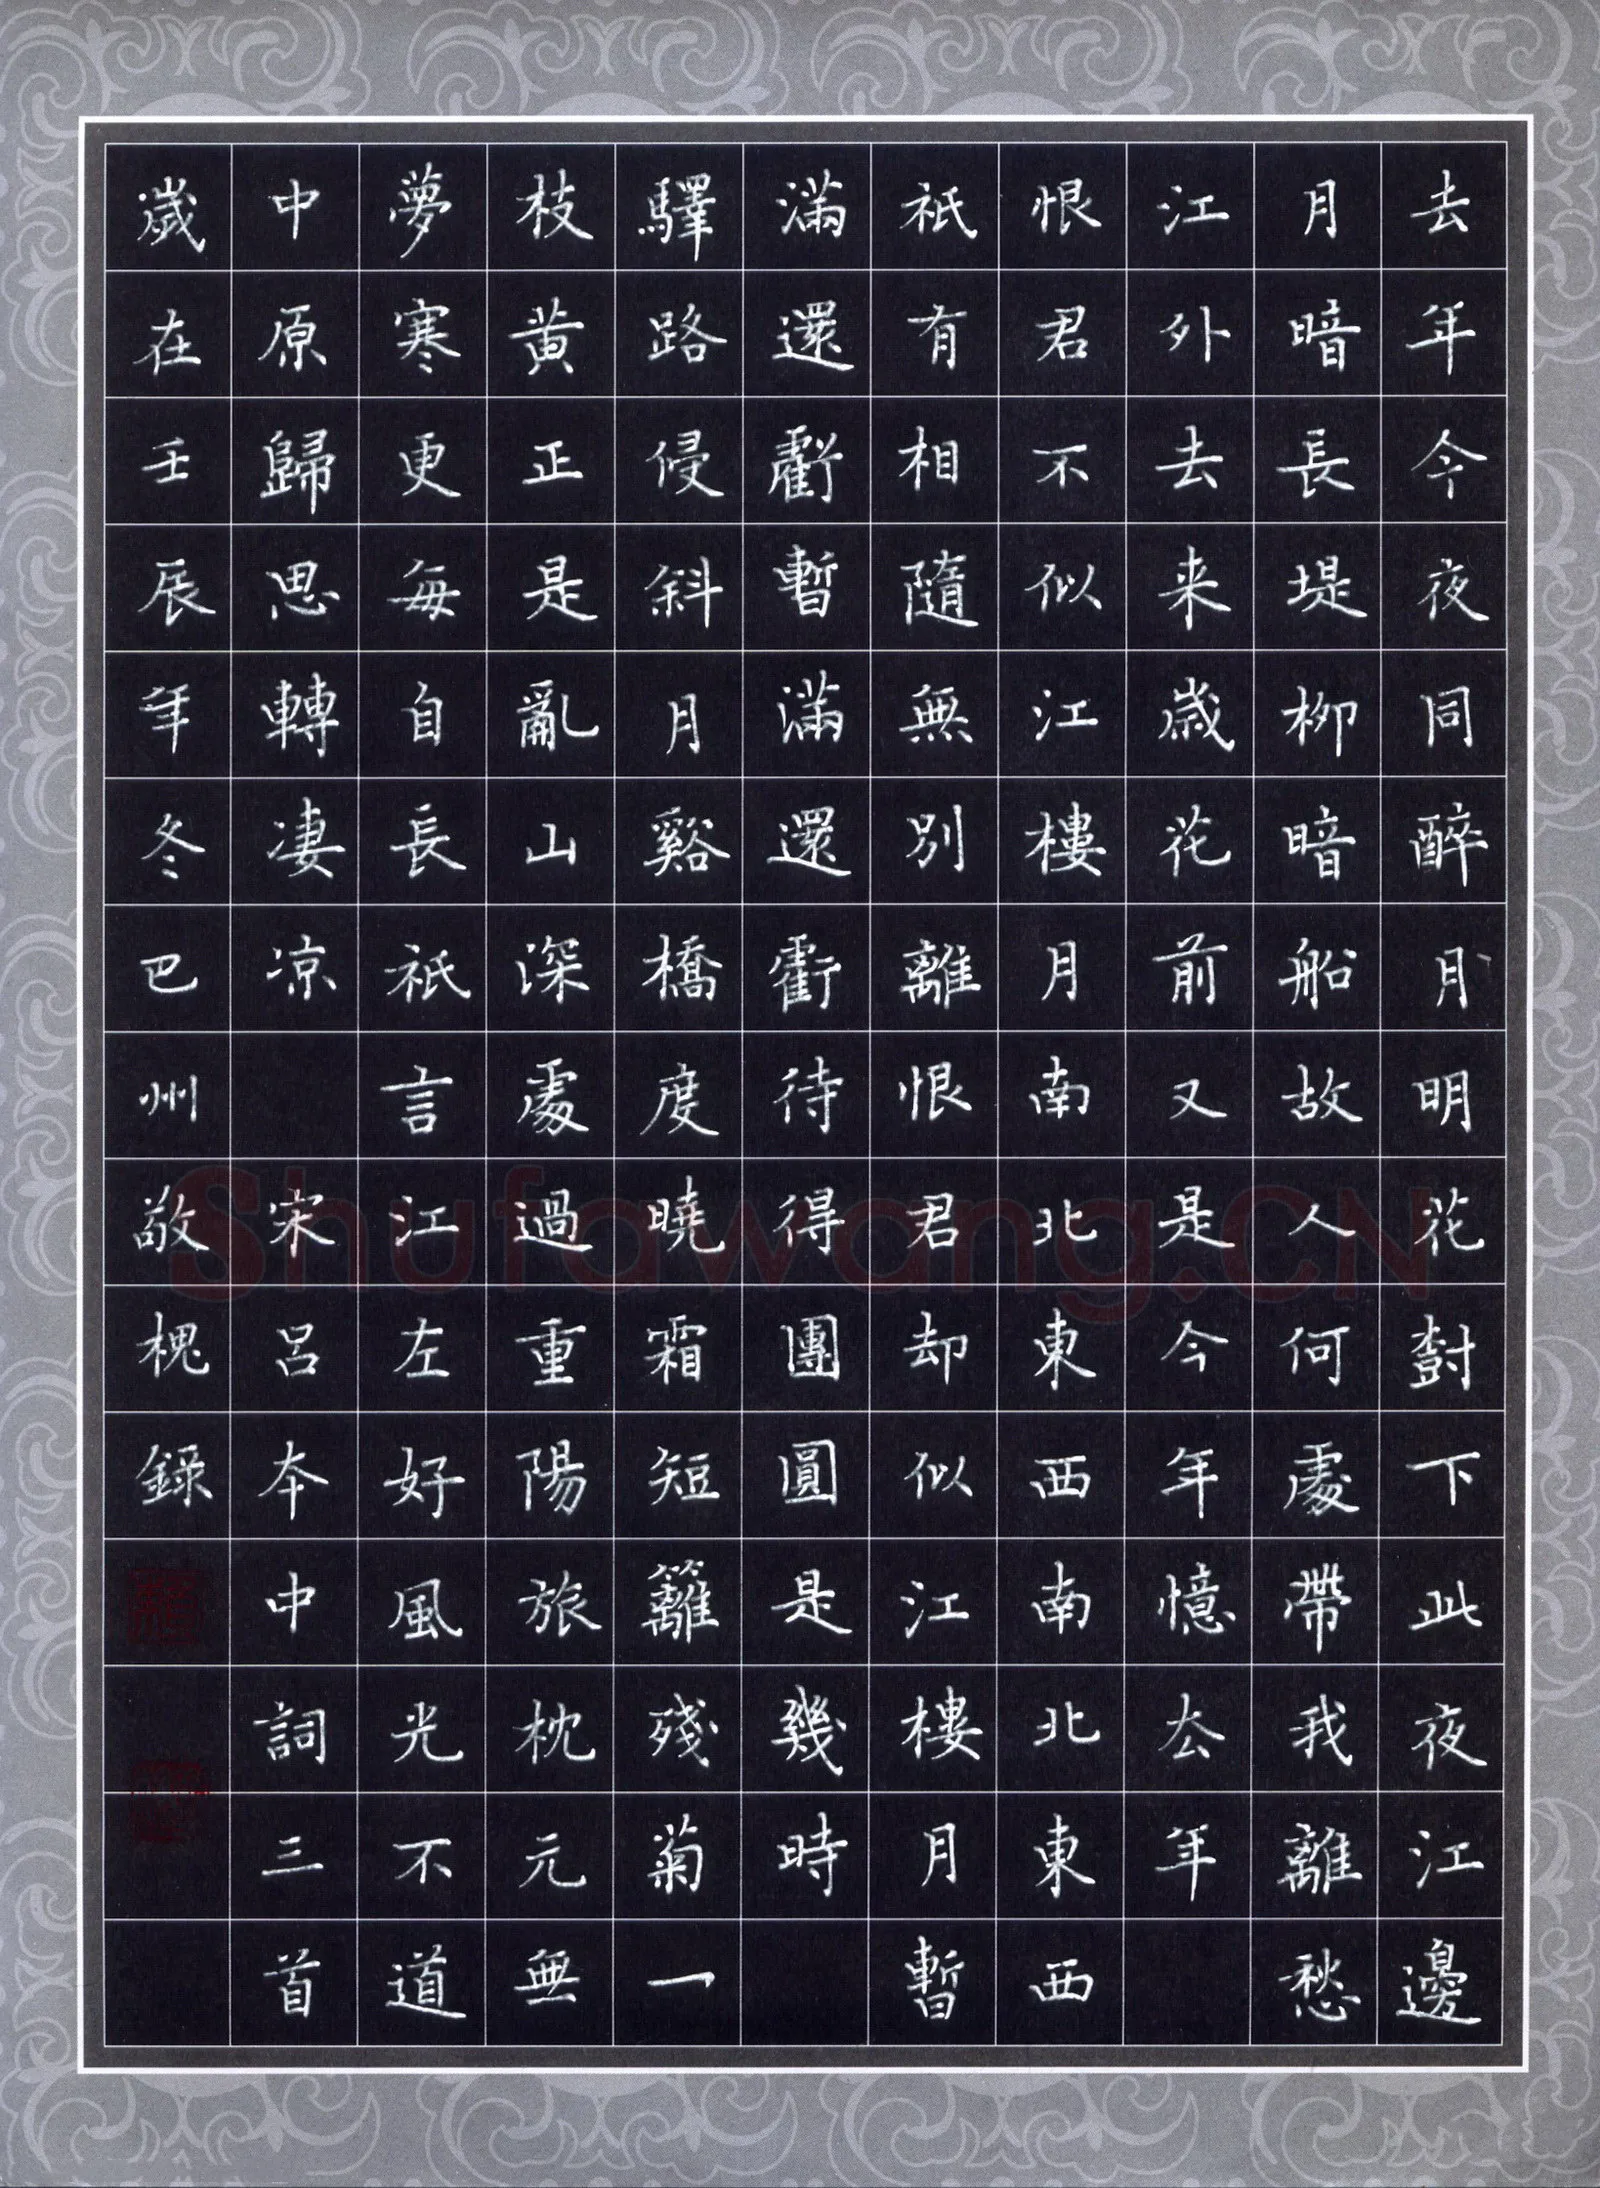 去年今夜同醉月明花樹下此夜江邊
月暗長堤柳暗船故人何處帶我離愁
江外去来歲花前又是今年憶去年
恨君不似江樓月南北東西南北東西
祇有相隨無別離恨君却似江樓月暫
滿還虧暫滿還虧待得團圓是幾時
驛路侵斜月谿橋度曉霜短籬殘菊一
枝黄正是亂山深處過重陽旅枕元無
夢寒更每自長祇言江左好風光不道
中原歸思轉凄凉 宋呂本中詞三首
歲在壬辰年冬巴州敬槐錄
Shufawang.CN